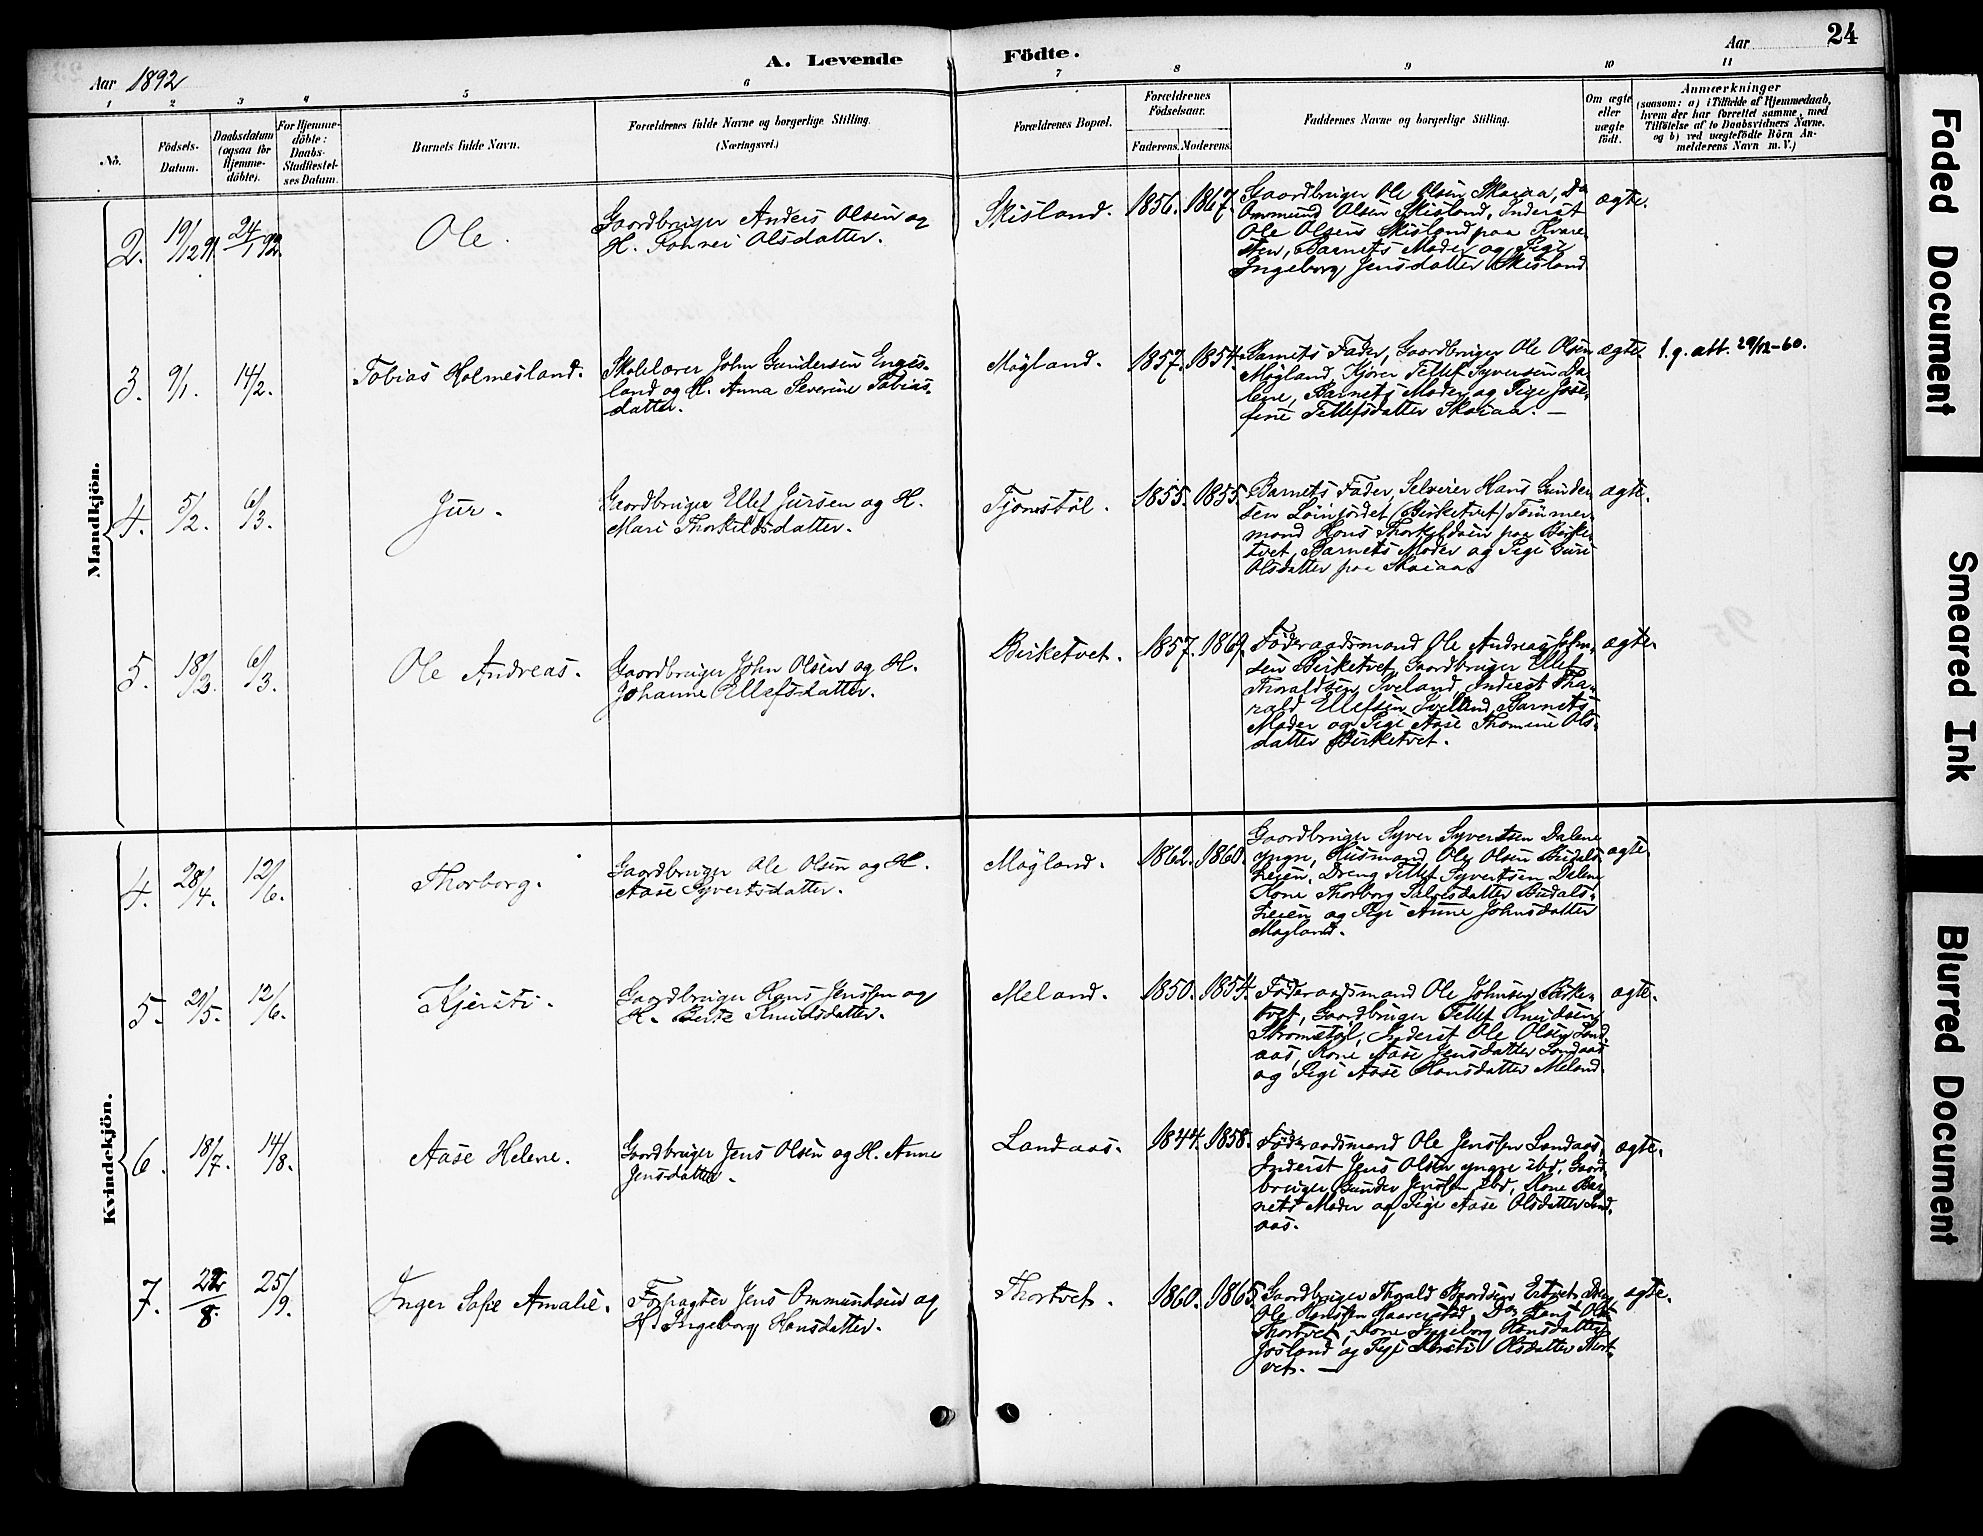 24
A. Levende Födte.
Aar 1892
Aar
1 2 3 4 5 6 7 8 9 10 11
No.
Födsels-
Datum.
Daabsdatum
(ogsaa for
Hjemme-
döbte).
For Hjemme-
döbte:
Daabs-
Stadfæstel-
ses Datum.
Barnets fulde Navn.
Forældrenes fulde Navne og borgerlige Stilling.
(Næringsvei.)
Forældrenes Bopæl.
Forældrenes
Födselsaar.
Faderens. Moderens.
Faddernes Navne og borgerlige Stilling.
Om ægte
eller
uægte
födt.
Anmærkninger
(saasom: a) i Tilfælde af Hjemmedaab,
hvem der har forrettet samme, med
Tilföielse af to Daabsvidners Navne,
og b) ved uægtefödte Börn An-
melderens Navn m. V.)
Mandkjön.
2. 19/12 91. 24/1 92.
Ole.
Gaardbruger Anders Olsen og
H. Olsdatter.
Skisland.
1856. 1867.
Gaardbruger Ole Olsen Skaiaa, Do
Ommund Olsen Skisland, Inderst
Ole Olsen Skisland paa Kvare-
sten, Barnets Moder og Pige
Ingeborg Jensdatter Skisland
ægte.
3. 9/1. 14/2.
Tobias Holmesland.
Skolelærer John Gundersen Engis-
land og H. Anna Severine Tobias-
datter.
Mögland.
1857. 1854.
Barnets Fader, Gaardbruger Ole Olsen
Mögland, Tellef Syversen Da-
lene, Barnets Moder og Pige Jose-
fine Tellefsdatter Skaiaa. —
ægte.
l. g. att. 29/12-60.
4. 5/2. 6/3.
Jur.
Gaardbruger Ellef Jursen og H.
Mari Thorkildsdatter.
Tjomstöl.
1855. 1855.
Barnets Fader, Selveier Hans Gunder-
sen (Birketvet) Tömmer-
mand Hans Thorkildsen paa Birke-
tvet, Barnets Moder og Pige Guri
Olsdatter paa Skaiaa.
ægte.
5. 18/2. 6/3.
Ole Andreas.
Gaardbruger John Olsen og H.
Johanne Ellefsdatter.
Birketvet.
1857. 1869.
Föderaadsmand Ole Andreas John-
sen Birketvet, Gaardbruger Ellef
Thoraldsen Iveland, Inderst Tho-
rald Ellefsen Iveland, Barnets
Moder og Pige Aase Thomine Ols-
datter Birketvet.
ægte.
Kvindekjön.
4. 28/4. 12/6.
Thorborg.
Gaardbruger Ole Olsen og H.
Aase Syvertsdatter.
Mögland.
1862. 1860.
Gaardbruger Syver Syvertsen Dalene
yngre, Husmand Ole Olsen Budals-
heien, Dreng Tellef Syvertsen Dalene
Kone Thorborg Salvesdatter Budals-
heien og Pige Anne Johnsdatter
Mögland.
ægte.
5. 21/5. 12/6.
Kjersti.
Gaardbruger Hans Jenssen og
H. Berte Knudsdatter.
Meland.
1850. 1854.
Föderaadsmand Ole Johnsen Birke-
tvet, Gaardbruger Tellef Knudsen
Inderst Ole Olsen Land-
aas, Kone Aase Jensdatter Landaas
og Pige Aase Hansdatter Meland.
ægte.
6. 18/7. 14/8.
Aase Helene.
Gaardbruger Jens Olsen og H. Anne
Jensdatter.
Landaas.
1844. 1858.
Föderaadsmand Ole Jenssen Landaas,
Inderst Jens Olsen yngre ibd, Gaard-
bruger Gunder Jenssen ibd, Kone Bar-
nets Moder og Pige Aase Olsdatter Land-
aas.
ægte.
7. 22/8. 25/9.
Inger Sofie Amalie.
Forpagter Jens Ommundsen og
H. Ingeborg Hansdatter.
Thortvet.
1860. 1865.
Gaardbruger Thorald Baardsen
Ole Hanssen Do Hans Olsen
Thortvet, Kone Ingeborg Hansdatter
Josland og Pige Kersti Olsdatter Thort-
vet. —
ægte.
Faded Document
Smeared Ink
Blurred Document